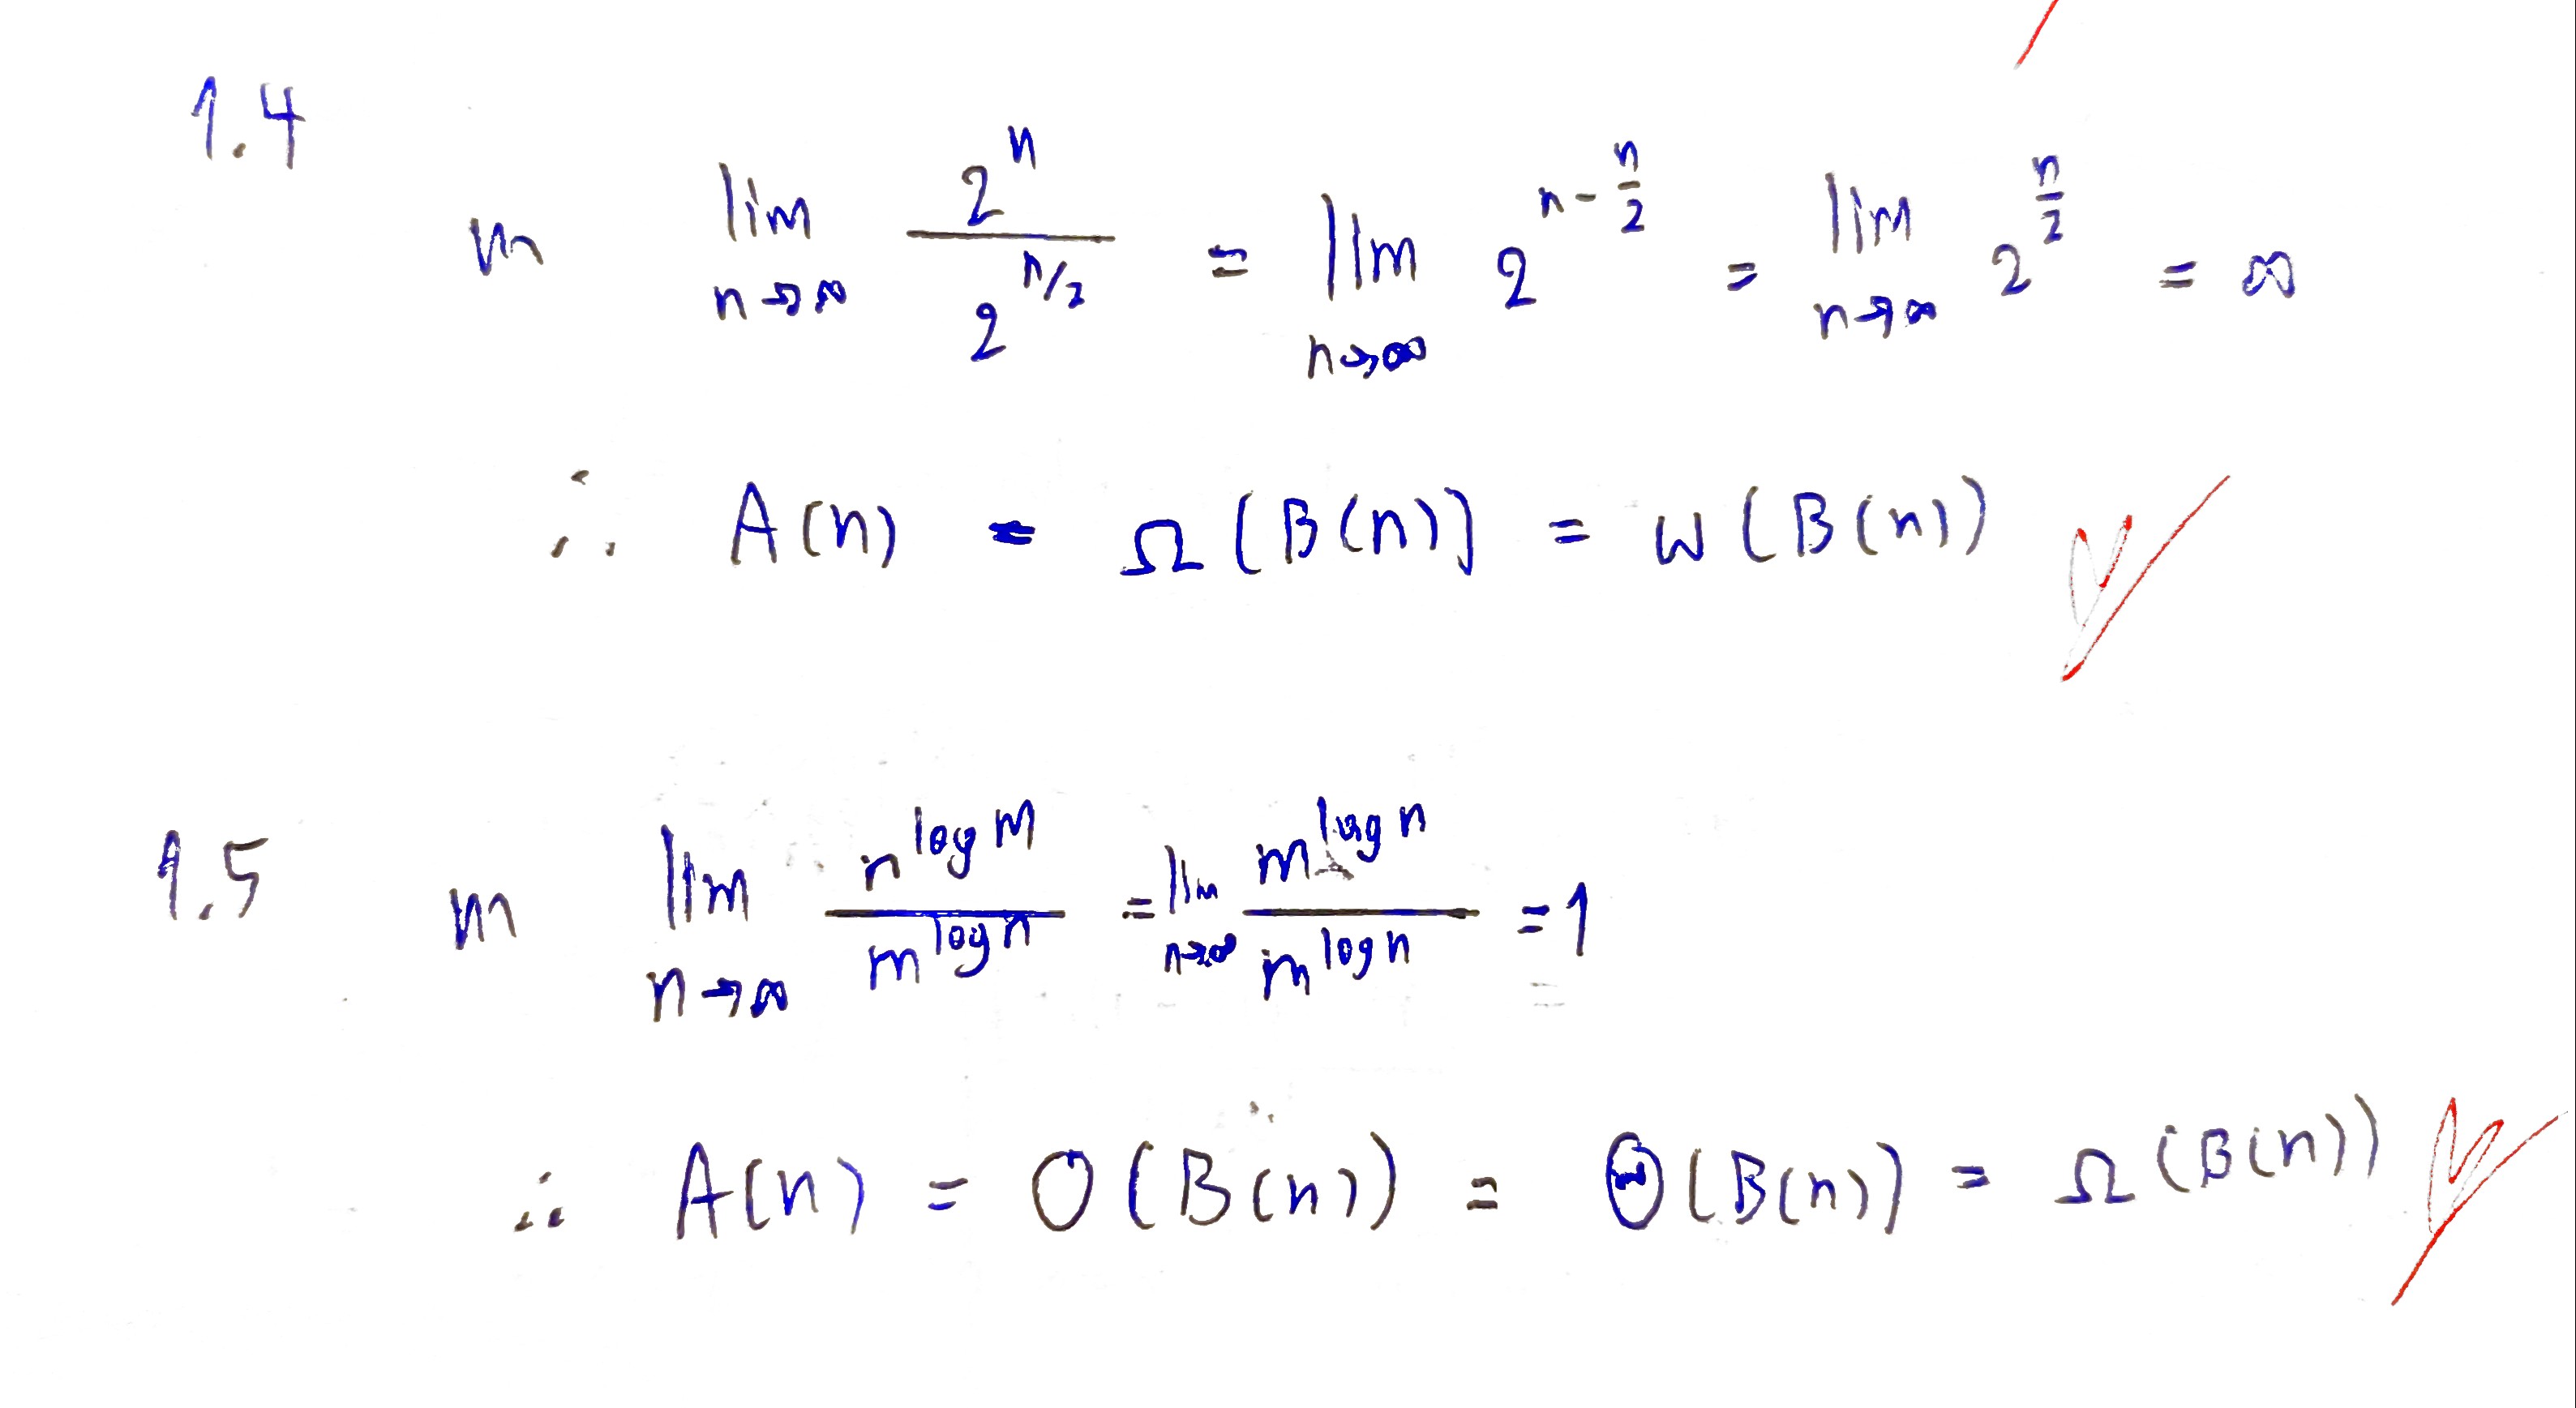 1.4
หา lim n→∞ 2^n / 2^(n/2) = lim n→∞ 2^(n - n/2) = lim n→∞ 2^(n/2) = ∞
∴ A(n) = Ω(B(n)) = ω(B(n))
1.5 หา lim n→∞ n^(log m) / m^(log n) = lim n→∞ m^(log n) / m^(log n) = 1
∴ A(n) = O(B(n)) = Θ(B(n)) = Ω(B(n))